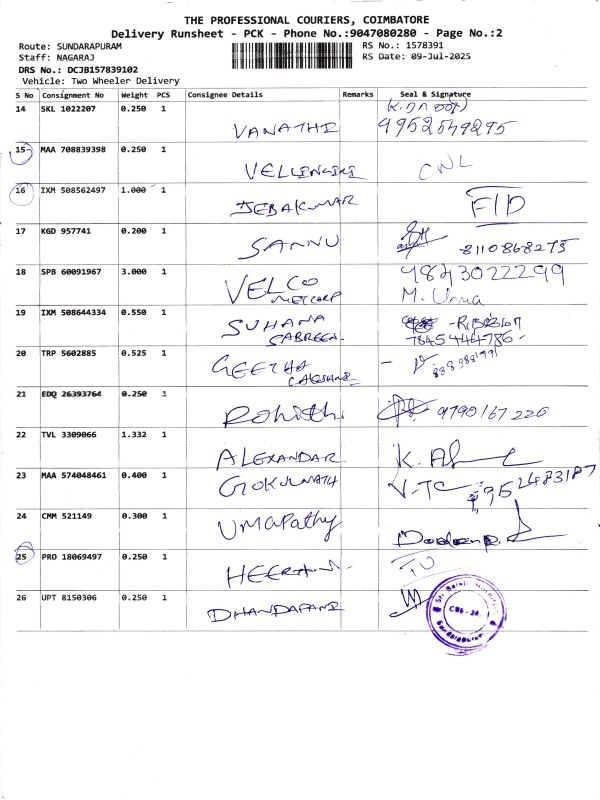 THE PROFESSIONAL COURIERS, COIMBATORE
Delivery Runsheet - PCK - Phone No.:9047080280 - Page No.:2
Route: SUNDARAPURAM RS No.: 1578391
Staff: NAGARAJ RS Date: 09-Jul-2025
DRS No.: DCJB157839102
Vehicle: Two Wheeler Delivery
S No Consignment No Weight PCS Consignee Details Remarks Seal & Signature
14 SKL 1022207 0.250 1 VANATHI 9952549295
15 MAA 708839398 0.250 1 CNL
16 IXM 508562497 1.000 1 JEBAKUMAR
17 KGD 957741 0.200 1 SANNU 8110868275
18 SPB 60091967 3.000 1 VELCO METCORP 9843022299
M. Uma
19 IXM 508644334 0.550 1 SUHANA SABREEN
7845444786
20 TRP 5602885 0.525 1 GEETHA
21 EDQ 26393764 0.250 1 Rohith 9790167226
22 TVL 3309066 1.332 1 ALEXANDAR
23 MAA 574048461 0.400 1 GOKULNATH
24 CMM 521149 0.300 1 UMAPathy
25 PRO 18069497 0.250 1
26 UPT 8150306 0.250 1 DHANDAPANI
CBE - 24